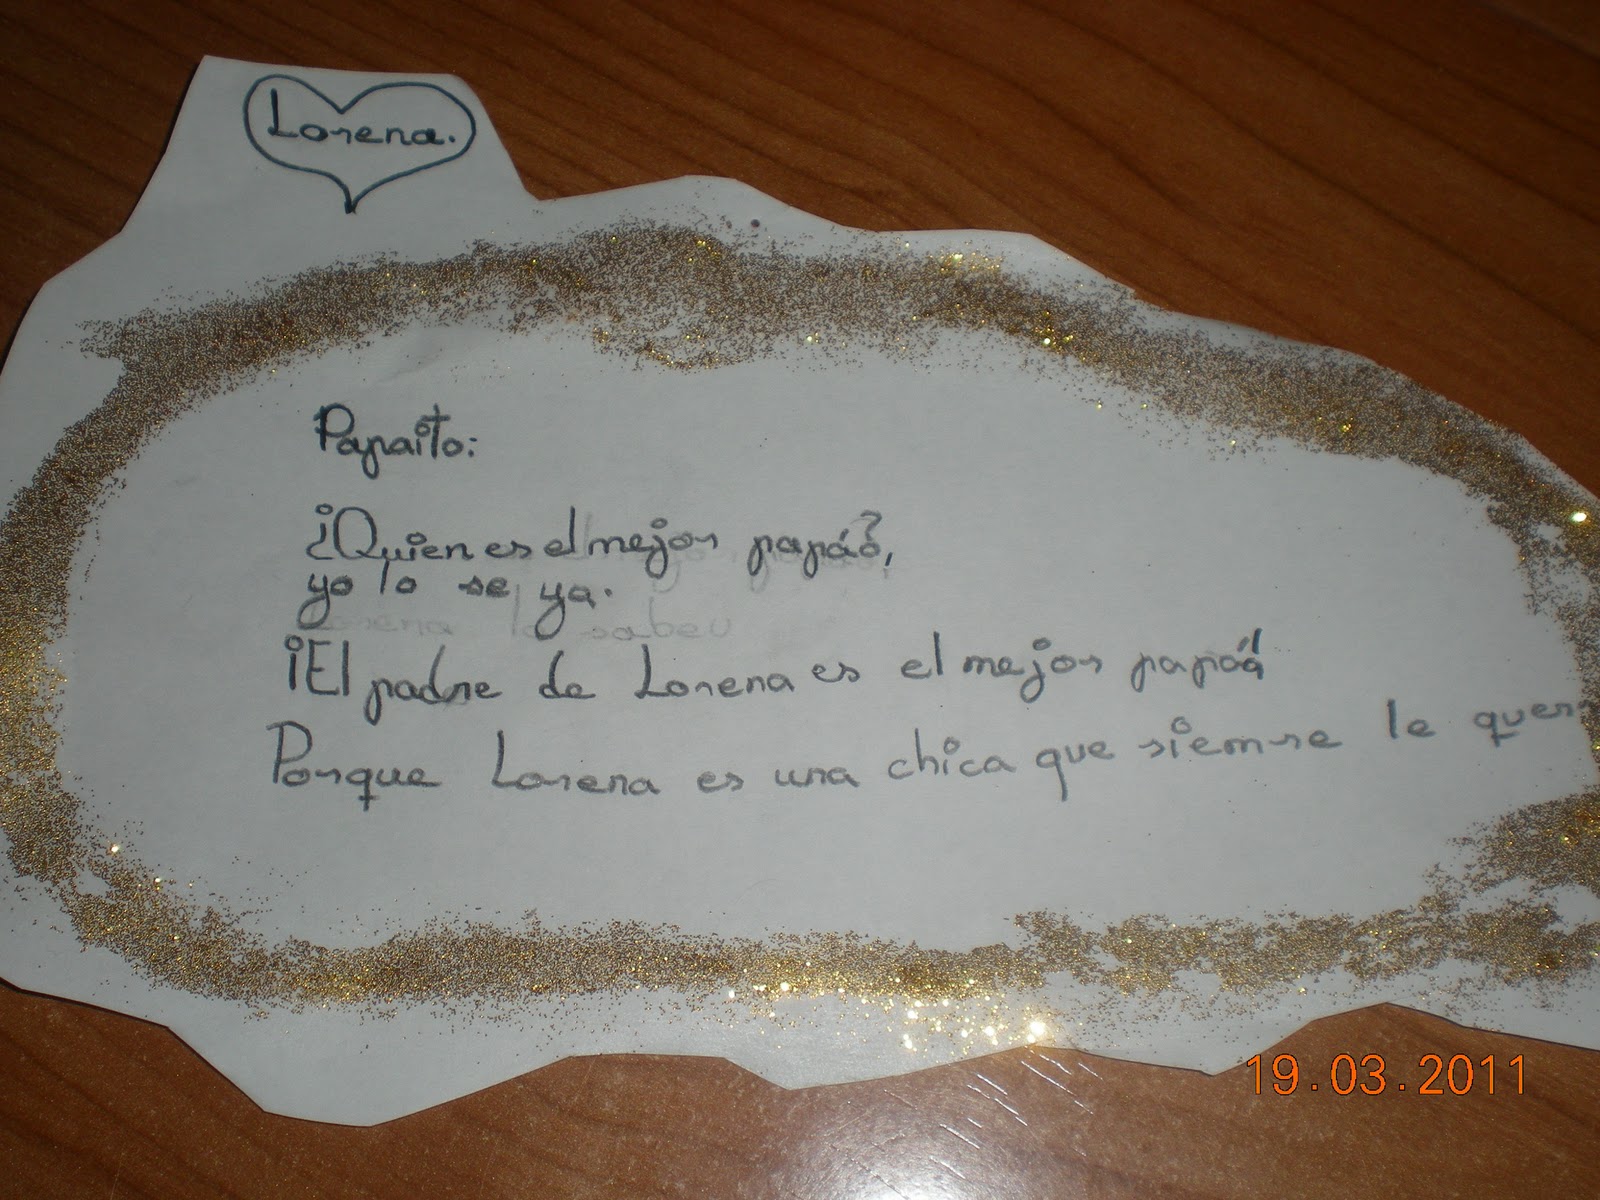 Lorena.
Papaito:
¿Quien es el mejor papá?,
yo lo se ya.
¡El padre de Lorena es el mejor papá!
Porque Lorena es una chica que siemre le
19.03.2011